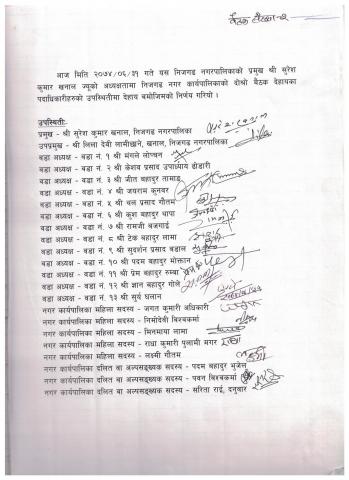 बैठक संख्या-२
आज मिति २०७४/०६/३१ गते यस निजगढ नगरपालिकाको प्रमुख श्री सुरेश
कुमार खनाल ज्यूको अध्यक्षतामा निजगढ नगर कार्यपालिकाको दोश्रो बैठक देहायका
पदाधिकारीहरुको उपस्थितीमा देहाय बमोजिमको निर्णय गरियो ।
उपस्थितीः
प्रमुख - श्री सुरेश कुमार खनाल, निजगढ नगरपालिका
उपप्रमुख - श्री लिला देवी लामीछाने, खनाल, निजगढ नगरपालिका
वडा अध्यक्ष - वडा नं. १ श्री मंगले लोप्चन
वडा अध्यक्ष - वडा नं. २ श्री केशव प्रसाद उपाध्याय डोडारी
वडा अध्यक्ष - वडा नं. ३ श्री जीत बहादुर तामाङ
वडा अध्यक्ष - वडा नं. ४ श्री जयराम कुनवर
वडा अध्यक्ष - वडा नं. ५ श्री चल प्रसाद गौतम
वडा अध्यक्ष - वडा नं. ६ श्री कुश बहादुर थापा
वडा अध्यक्ष - वडा नं. ७ श्री रामजी बजगाई
वडा अध्यक्ष - वडा नं. ८ श्री टेक बहादुर लामा
वडा अध्यक्ष - वडा नं. ९ श्री सुदर्शन प्रसाद बडाल
वडा अध्यक्ष - वडा नं. १० श्री पदम बहादुर मोक्तान
वडा अध्यक्ष - वडा नं. ११ श्री प्रेम बहादुर रुम्बा
वडा अध्यक्ष - वडा नं. १२ श्री ज्ञान बहादुर गोले
वडा अध्यक्ष - वडा नं. १३ श्री सुर्य घलान
नगर कार्यपालिका महिला सदस्य - जगत कुमारी अधिकारी
नगर कार्यपालिका महिला सदस्य - निर्मादेवी विश्वकर्मा
नगर कार्यपालिका महिला सदस्य - मिनमाया लामा
नगर कार्यपालिका महिला सदस्य - राधा कुमारी पुलामी मगर
नगर कार्यपालिका महिला सदस्य - लक्ष्मी गौतम
नगर कार्यपालिका दलित वा अल्पसङ्ख्यक सदस्य - पदम बहादुर भुजेल
नगर कार्यपालिका दलित वा अल्पसङ्ख्यक सदस्य - पवन विश्वकर्मा
नगर कार्यपालिका दलित वा अल्पसङ्ख्यक सदस्य - सरिता राई, दनुवार